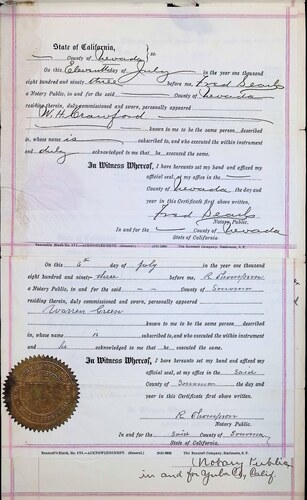 State of California,
County of Nevada } ss.
On this Eleventh day of July in the year one thousand
eight hundred and ninety three before me, Fred Searls
a Notary Public, in and for the said County of Nevada
residing therein, duly commissioned and sworn, personally appeared
W. H. Crawford
known to me to be the same person described
in, whose name is subscribed to, and who executed the within instrument
and duly acknowledged to me that he executed the same.
In Witness Whereof, I have hereunto set my hand and affixed my
official seal, at my office in the
County of Nevada the day and
year in this Certificate first above written.
Fred Searls
Notary Public.
In and for the County of Nevada
State of California
On this 6th day of July in the year one thousand
eight hundred and ninety-three before me, R Thompson
a Notary Public, in and for the said County of Sonoma
residing therein, duly commissioned and sworn, personally appeared
Warren Green
known to me to be the same person described
in, whose name is subscribed to, and who executed the within instrument
and he acknowledged to me that he executed the same.
In Witness Whereof, I have hereunto set my hand and affixed my
official seal, at my office in the said
County of Sonoma the day and
year in this Certificate first above written.
R Thompson
Notary Public.
In and for the said County of Sonoma
State of California.
(Notary Public
in and for Yuba Co, Calif.